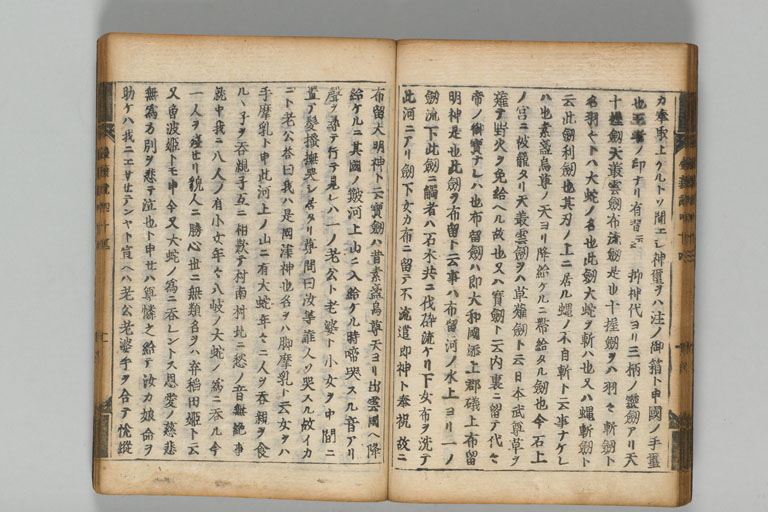 カ奉取上ケルトソ聞エシ神璽ヲハ注ノ御箱ト申國ノ手璽
也王者ノ印ナリ有習云々 抑神代ヨリ三柄ノ靈劒アリ天
十握劒天叢雲劒布流劒是也十握劒ヲハ羽々斬劒ト
名羽々トハ大蛇ノ名也此劒大蛇ヲ斬ハ也又ハ蝿斬劒ト
云此劒利劒也其刃ノ上ニ居ル蝿ノ不自斬ト云事ナケレ
ハ也素盞烏尊ノ天ヨリ降給ケルニ帶給タル劒也今石上
ノ宮ニ被籠タリ天叢雲劒ヲハ草薙劒ト云日本武尊草ヲ
薙テ野火ヲ免給ヘル故也又ハ寶劒ト云内裏ニ留テ代々
帝ノ御寶ナレハ也布留劒ハ即大和國添上郡礒上布留
明神是也此劒ヲ布留ト云事ハ布留河ノ水上ヨリ一ノ
劒流下此劒ニ觸者ハ石木共ニ伐碎流ケリ下女布ヲ洗テ
此河ニアリ劒下女カ布ニ留テ不流遣即神ト奉祝故ニ
布留大明神ト云寶劒ハ昔素盞烏尊天ヨリ出雲國ヘ降
給ケルニ其國ノ簸河上山ニ入給ケル時啼哭スル音アリ
聲ヲ尋テ行テ見レハ一ノ老公ト老婆ト小女ヲ中間ニ
置テ髮搔撫哭シ居タリ尊問曰汝等誰人ソ哭スル故イカ
ニト老公答曰我ハ是國津神也名ヲハ脚摩乳ト云女ヲハ
手摩乳ト申此河上ノ山ニ有大蛇年々ニ人ヲ呑親ヲ食
ルヽ子ヲ呑親子互ニ相歎テ村南村北ニ愁ノ音無絶事
就中我ニ八人ノ有小女年々八岐ノ大蛇ノ爲ニ呑ル今
一人ヲ殘セリ貌人ニ勝心世ニ無類名ヲハ奇稲田姫ト云
又曽波姫トモ申今又大蛇ノ爲ニ呑レントス恩愛ノ慈悲
無爲方別ヲ悲テ泣也ト申せハ尊憐之給テ汝カ娘命ヲ
助ケハ我ニエサせテンヤト宣ヘハ老公老婆手ヲ合テ悦縱